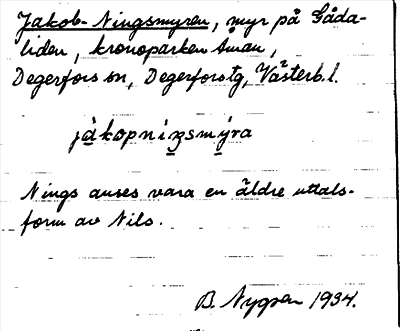 Jakob-Ningsmyren, myr på Gåda-
liden, kronoparken Åman,
Degerfors sn, Degerforstg, Västerb. l.
jákopniŋsmýra
Nings anses vara en äldre uttals-
form av Nils.
B. Nygren 1934.